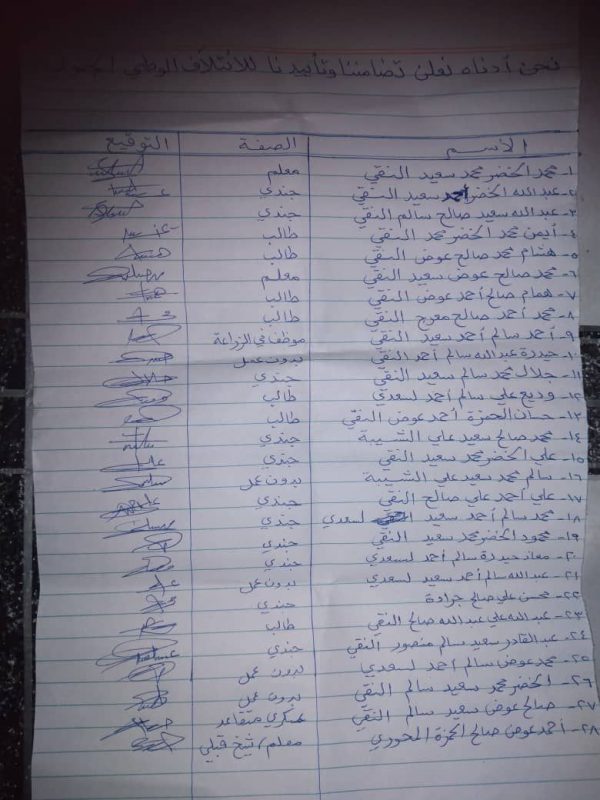 نحن أدناه نعلن تضامننا وتأييدنا للائتلاف الوطني
الأسم الصفة التوقيع
١- محمد الخضر محمد سعيد النقي معلم
٢- عبدالله الخضر أحمد سعيد النقي جندي
٣- عبدالله سعيد صالح سالم النقي جندي
٤- أيمن محمد الخضر محمد النقي طالب
٥- هشام محمد صالح عوض النقي طالب
٦- محمد صالح عوض سعيد النقي معلم
٧- همام صالح أحمد عوض النقي طالب
٨- محمد أحمد صالح مفرج النقي طالب
٩- أحمد سالم أحمد سعيد النقي موظف في الزراعة
١٠- حيدرة عبدالله سالم أحمد النقي بدون عمل
١١- جلال محمد سالم سعيد النقي جندي
١٢- وديع علي سالم أحمد لسعدي طالب
١٣- حسان الحمزة أحمد عوض النقي طالب
١٤- محمد صالح سعيد علي الشيبة جندي
١٥- علي الخضر محمد سعيد النقي جندي
١٦- سالم محمد سعيد علي الشيبة بدون عمل
١٧- علي أحمد علي صالح النقي جندي
١٨- محمد سالم أحمد سعيد لسعدي جندي
١٩- محمود الخضر محمد سعيد النقي جندي
٢٠- معاند حيدرة سالم أحمد لسعدي جندي
٢١- عبدالله سالم أحمد سعيد لسعدي بدون عمل
٢٢- محسن علي صالح جرادة جندي
٢٣- عبدالله علي عبدالله صالح النقي طالب
٢٤- عبدالقادر سعيد سالم منصور النقي جندي
٢٥- محمد عوض سالم أحمد لسعدي بدون عمل
٢٦- الخضر محمد سعيد سالم النقي بدون عمل
٢٧- صالح عوض سعيد سالم النقي عسكري متقاعد
٢٨- أحمد عوض صالح الحمزة المحوري معلم / شيخ قبلي